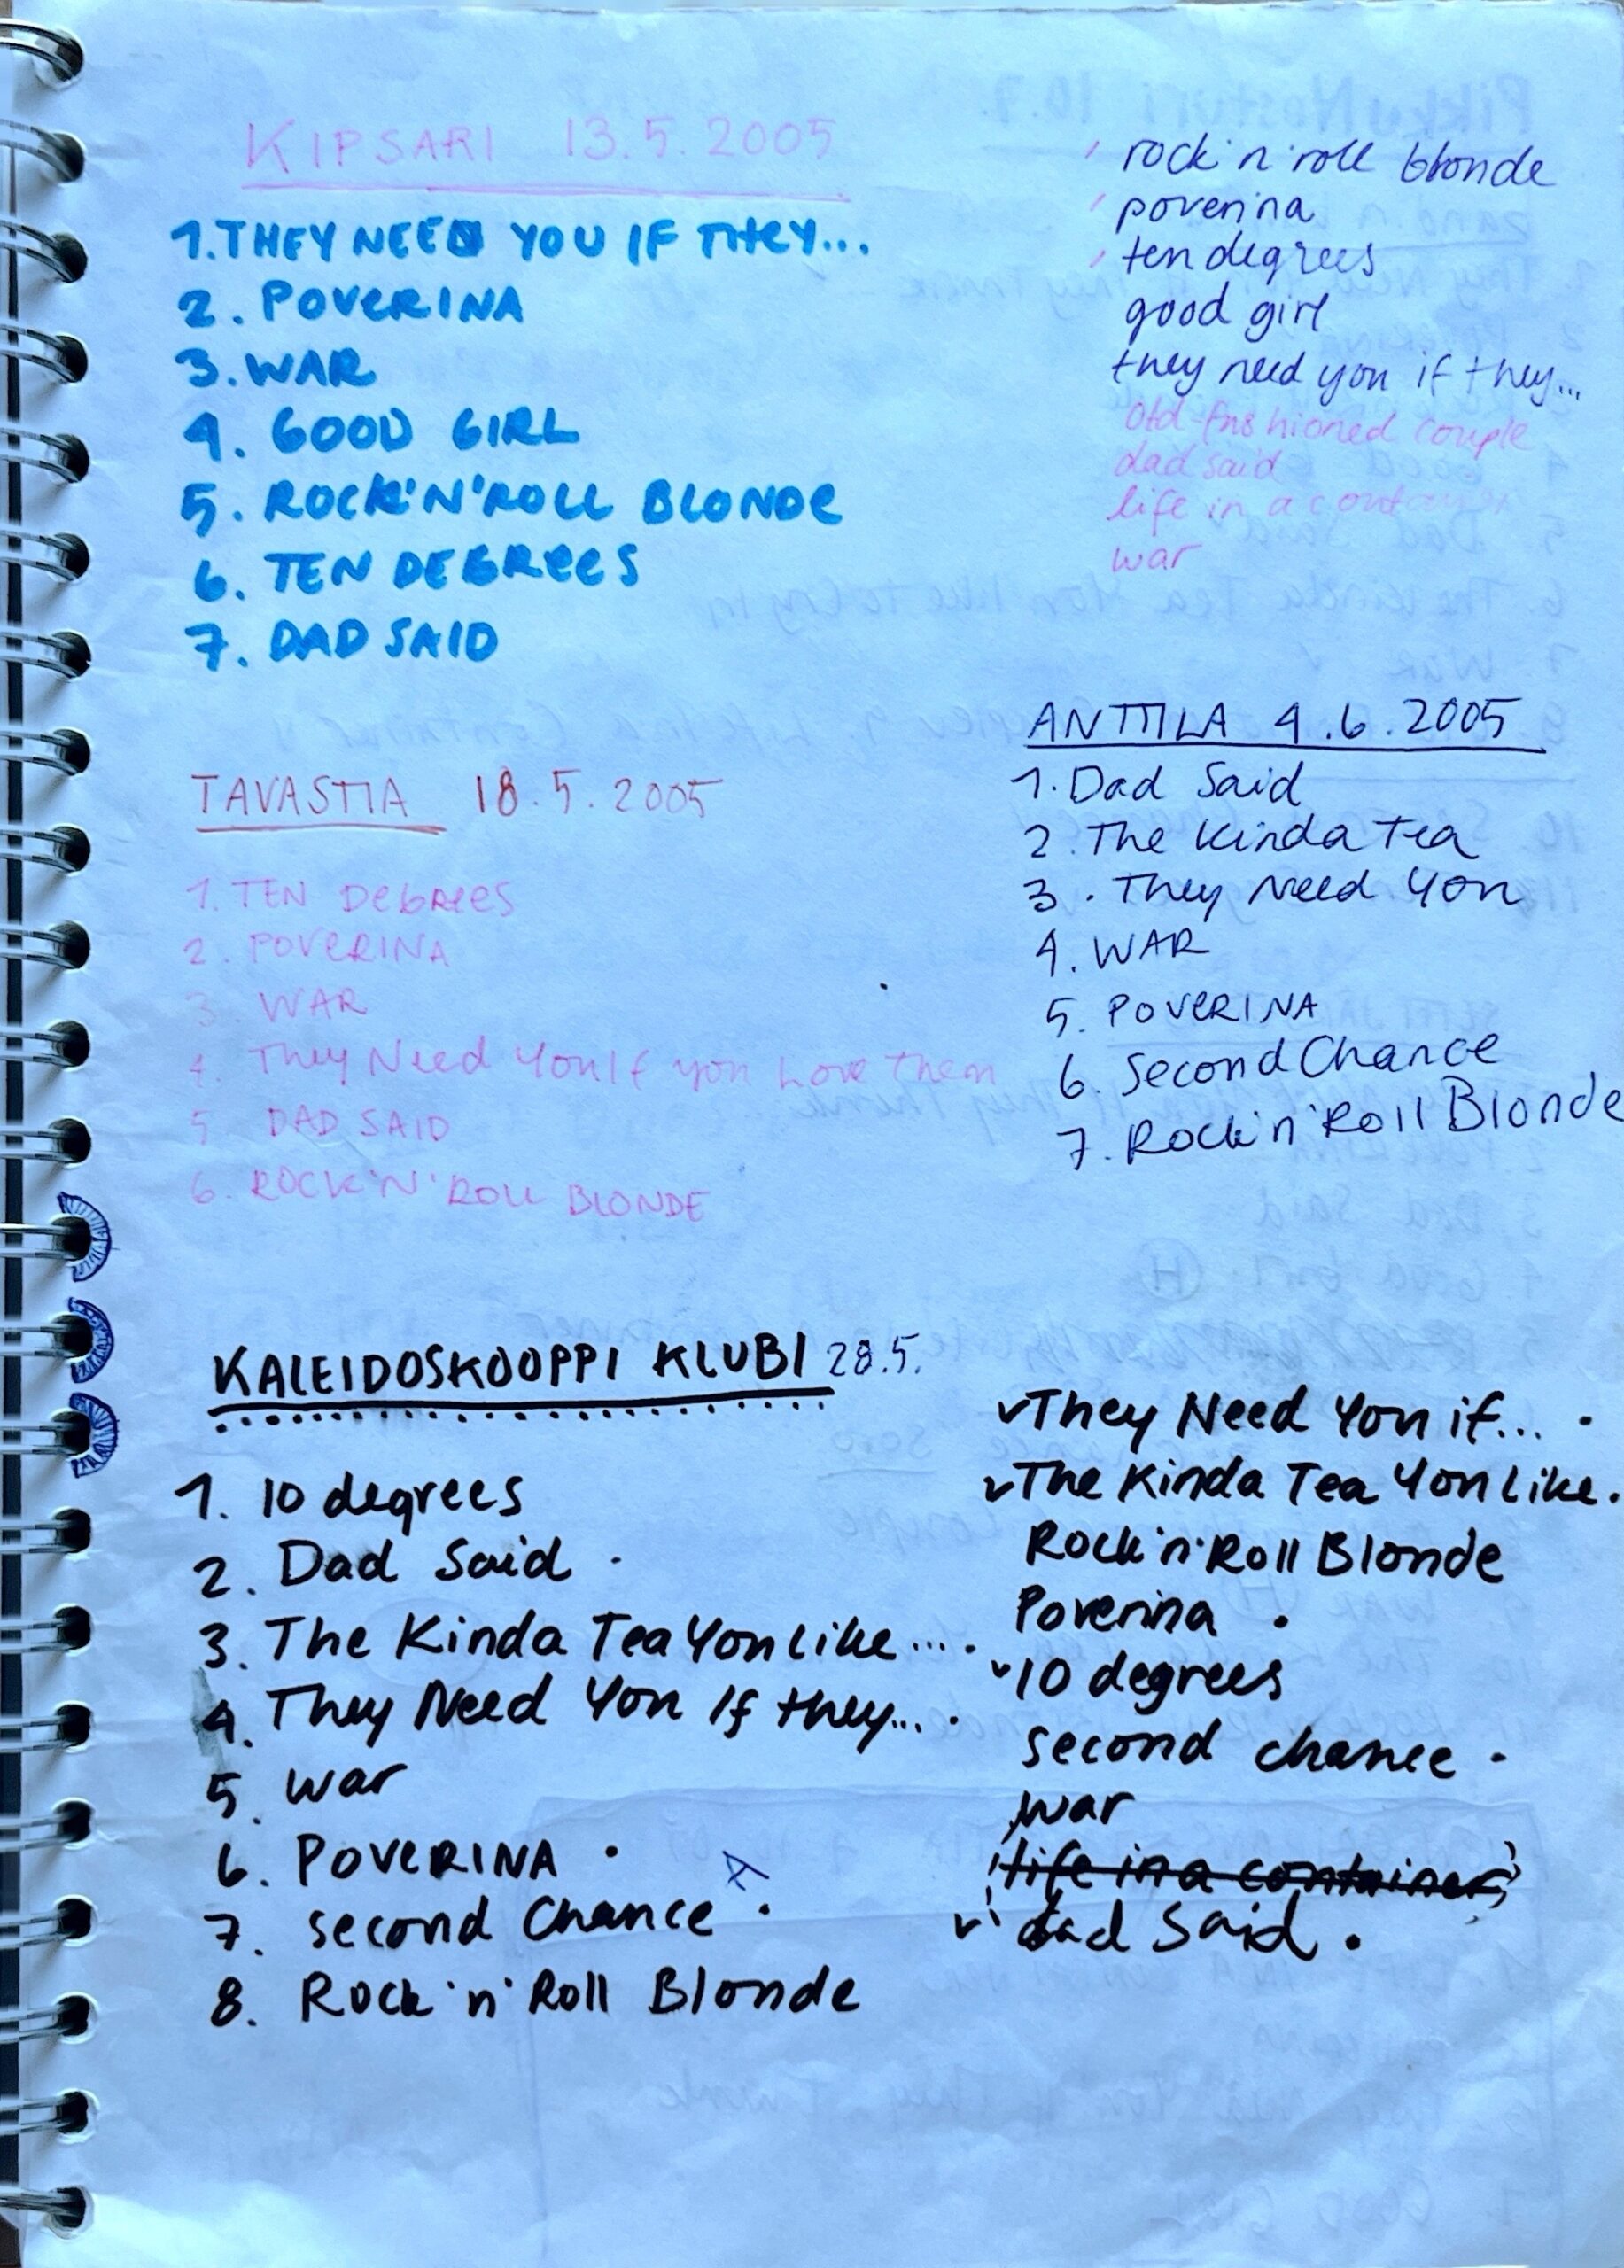 KIPSARI 13.5.2005
1. THEY NEED YOU IF THEY...
2. POVERINA
3. WAR
4. GOOD GIRL
5. ROCK'N'ROLL BLONDE
6. TEN DEGREES
7. DAD SAID
rock'n'roll blonde
poverina
ten degrees
good girl
they need you if they...
Old-fashioned couple
dad said
life in a container
war
TAVASTIA 18.5.2005
1. TEN DEGREES
2. POVERINA
3. WAR
4. They Need You If you Love Them
5 DAD SAID
6. ROCK'N'ROLL BLONDE
ANTTILA 4.6.2005
1. Dad Said
2. The Kinda Tea
3. They Need You
4. WAR
5. POVERINA
6. Second Chance
7. Rock'n'Roll Blonde
KALEIDOSKOOPPI KLUBI 28.5.
1. 10 degrees
2. Dad Said
3. The Kinda Tea You Like...
4. They Need You If they...
5. war
6. POVERINA
7. second Chance
8. Rock'n'Roll Blonde
They Need You if...
The Kinda Tea You Like.
Rock'n'Roll Blonde
Poverina
10 degrees
second chance
war
life in a container
dad said